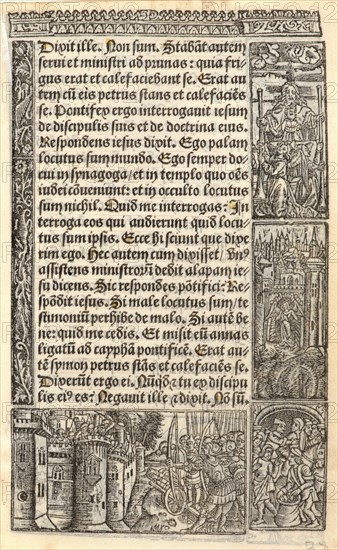 Dixit ille. Non sum. Stabãt autem
serui et ministri ad prunas : quia fri-
gus erat et calefaciebant se. Erat au
tem cũ eis petrus stans et calefaciẽs
se. Pontifex ergo interrogauit iesum
de discipulis suis et de doctrina eius.
Respondens iesus dixit. Ego palam
locutus sum mundo. Ego semper do-
cui in synagoga/et in templo quo oẽs
iudei cõueniunt: et in occulto locutus
sum nichil. Quid me interrogas: In
terroga eos qui audierunt quid locu-
tus sum ipsis. Ecce hi sciunt que dixe
rim ego. Hec autem cum dixisset/ vn⁹
assistens ministrorũ dedit alapam ie-
su dicens. Sic respondes põtifici: Re-
spõdit iesus. Si male locutus sum/te
stimoniũ perhibe de malo. Si autẽ be
ne: quid me cedis. Et misit eũ annas
ligatũ ad caypham pontificẽ. Erat au-
tẽ symon petrus stãs et calefaciẽs se.
Dixerũt ergo ei. Nũqd̃ ⁊ tu ex discipu
lis ei⁹ es: Negauit ille ⁊ dixit. Nõ sũ.